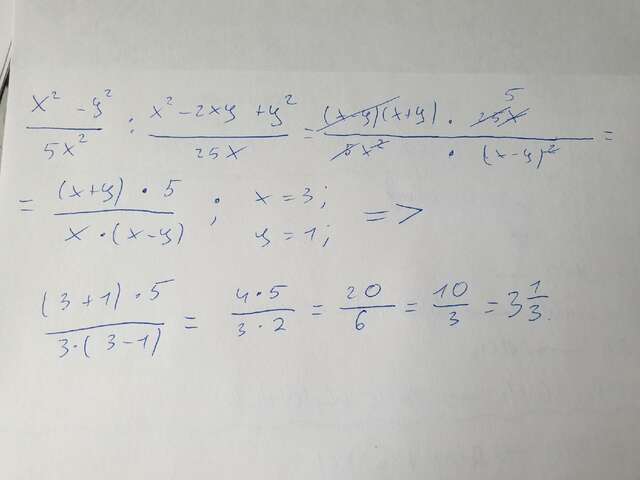 (x² - y²)/(5x²) : (x² - 2xy + y²)/(25x) = ((x-y)(x+y) · 25x 5)/(5x² · (x-y)²) =
= ((x+y) · 5)/(x · (x-y)) ; x = 3; y = 1; =>
((3+1) · 5)/(3 · (3-1)) = (4·5)/(3·2) = 20/6 = 10/3 = 3 1/3.